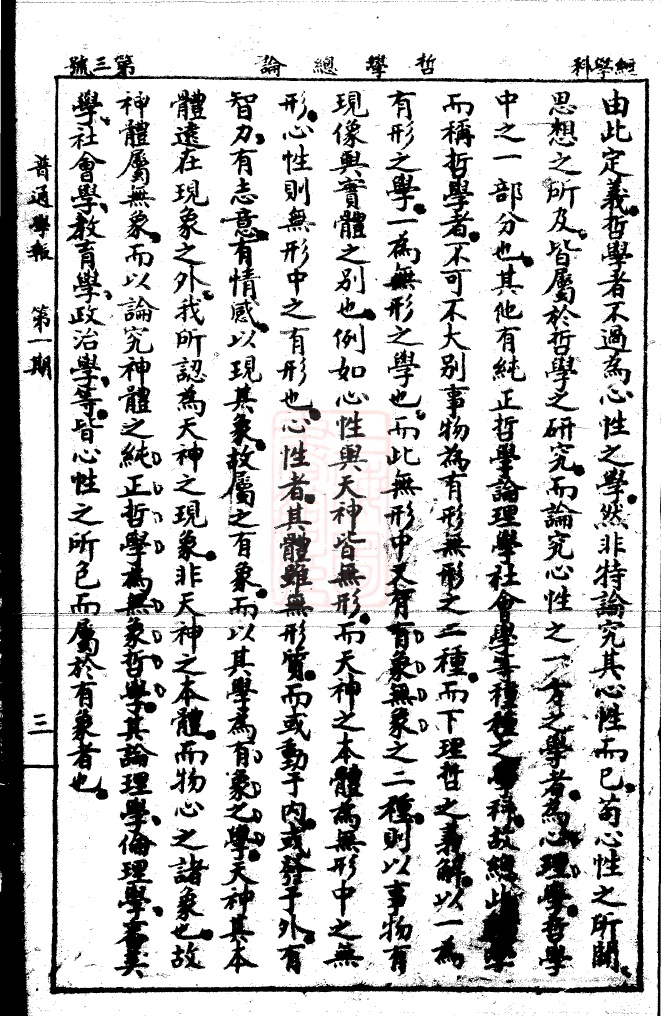 經學科　哲學總論　第三號
由此定義。哲學者不過為心性之學。然非特論究其心性而已。苟心性之所關。
思想之所及。皆屬於哲學之研究。而論究心性之一方之學者。為心理學。哲學
中之一部分也。其他有純正哲學論理學社會學等種種之學科。故總此
而稱哲學者。不可不大別事物為有形無形之二種。而下理哲之義解。以一為
有形之學。一為無形之學也。而此無形中又有有象無象之二種。則以事物有
現像與實體之別也。例如心性與天神皆無形。而天神之本體為無形中之無
形。心性則無形中之有形也。心性者。其體雖無形質。而或動于內。或發于外。有
智力。有志意。有情感。以現其象。故屬之有象。而以其學為有象之學。天神其本
體遠在現象之外。我所認為天神之現象。非天神之本體。而物心之諸象也。故
神體屬無象。而以論究神體之純正哲學為無象哲學。其論理學、倫理學、審美
學、社會學、教育學、政治學、等。皆心性之所色而屬於有象者也。
普通學報　第一期
三